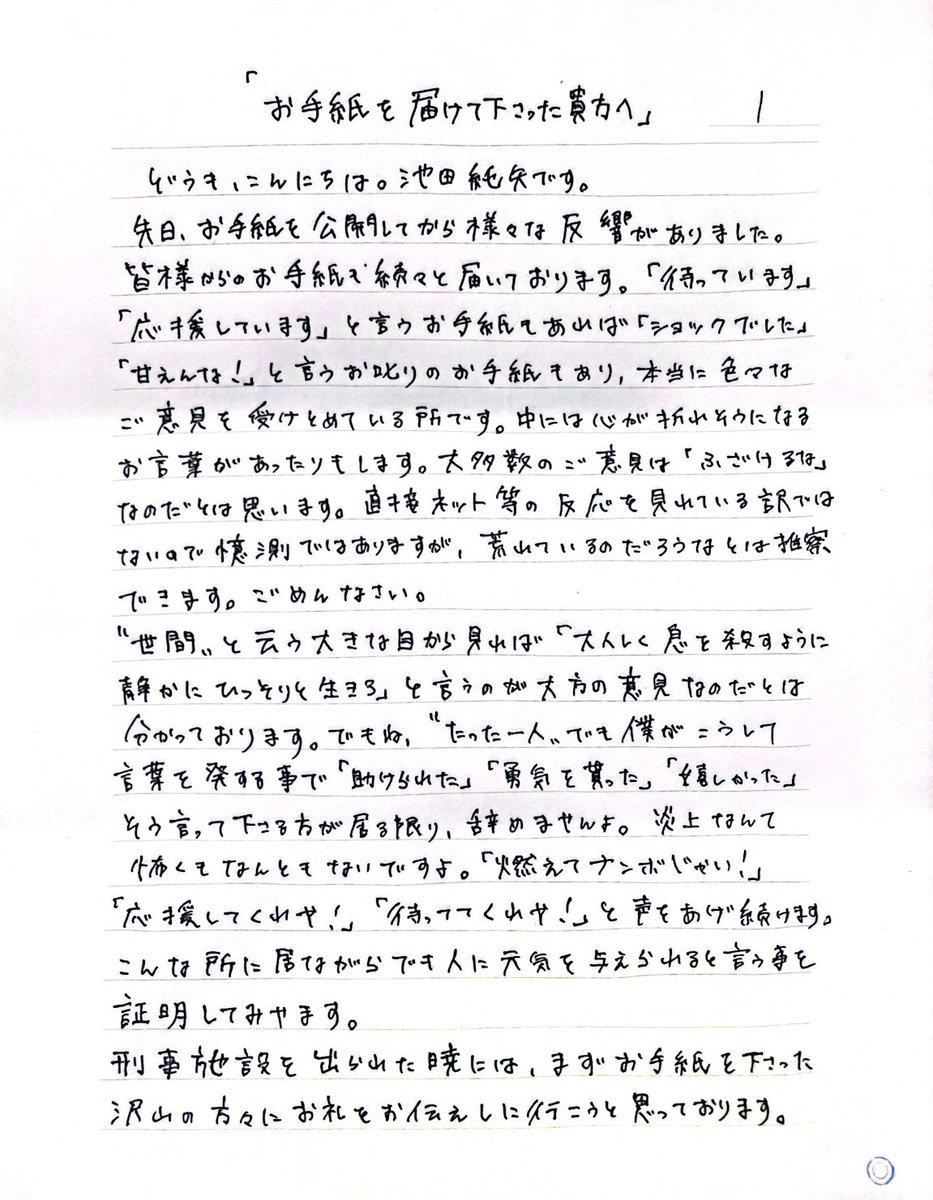 「お手紙を届けて下さった貴方へ」 1
どうも、こんにちは。池田純矢です。
先日、お手紙を公開してから様々な反響がありました。
皆様からのお手紙も続々と届いております。「待っています」
「応援しています」と言うお手紙もあれば「ショックでした」
「甘えんな!」と言うお叱りのお手紙もあり、本当に色々な
ご意見を受けとめている所です。中には心が折れそうになる
お言葉があったりもします。大多数のご意見は「ふざけるな」
なのだとは思います。直接ネット等の反応を見れている訳では
ないので憶測ではありますが、荒れているのだろうなとは推察
できます。ごめんなさい。
〝世間〟と云う大きな目から見れば「大人しく息を殺すように
静かにひっそりと生きろ」と言うのが大方の意見なのだとは
分かっております。でもね、〝たった一人〟でも僕がこうして
言葉を発する事で「助けられた」「勇気を貰った」「嬉しかった」
そう言って下さる方が居る限り、辞めませんよ。炎上なんて
怖くもなんともないですよ。「燃えてナンボじゃい!」
「応援してくれや!」「待っててくれや!」と声をあげ続けます。
こんな所に居ながらでも人に元気を与えられると言う事を
証明してみせます。
刑事施設を出られた暁には、まずお手紙を下さった
沢山の方々にお礼をお伝えしに行こうと思っております。